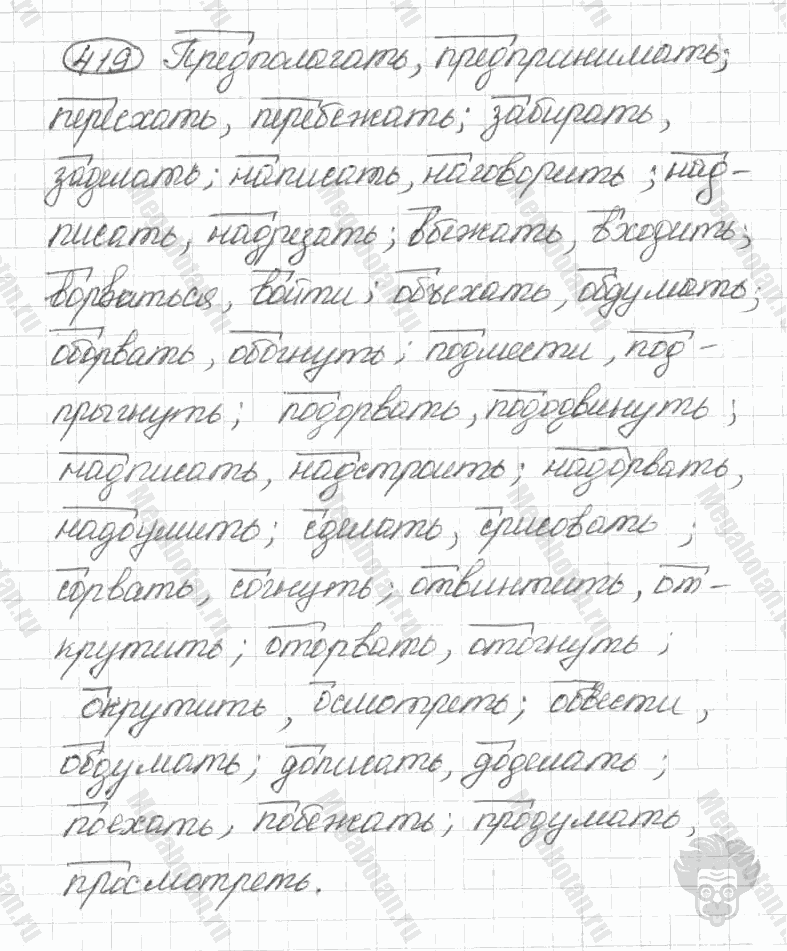 419 Предполагать, предпринимать;
переехать, перебежать; забирать,
заделать; написать, наговорить; над-
писать, надрезать; вбежать, входить;
ворваться, войти; объехать, обдумать;
оборвать, обогнуть; подмести, под-
прыгнуть; подорвать, пододвинуть;
надписать, надстроить; надорвать,
надоумить; сделать, срисовать;
сорвать, согнуть; отвинтить, от-
крутить; оторвать, отогнуть;
окрутить, осмотреть; обвести,
обдумать; дописать, доделать;
поехать, побежать; продумать,
просмотреть.
Megabotan.ru